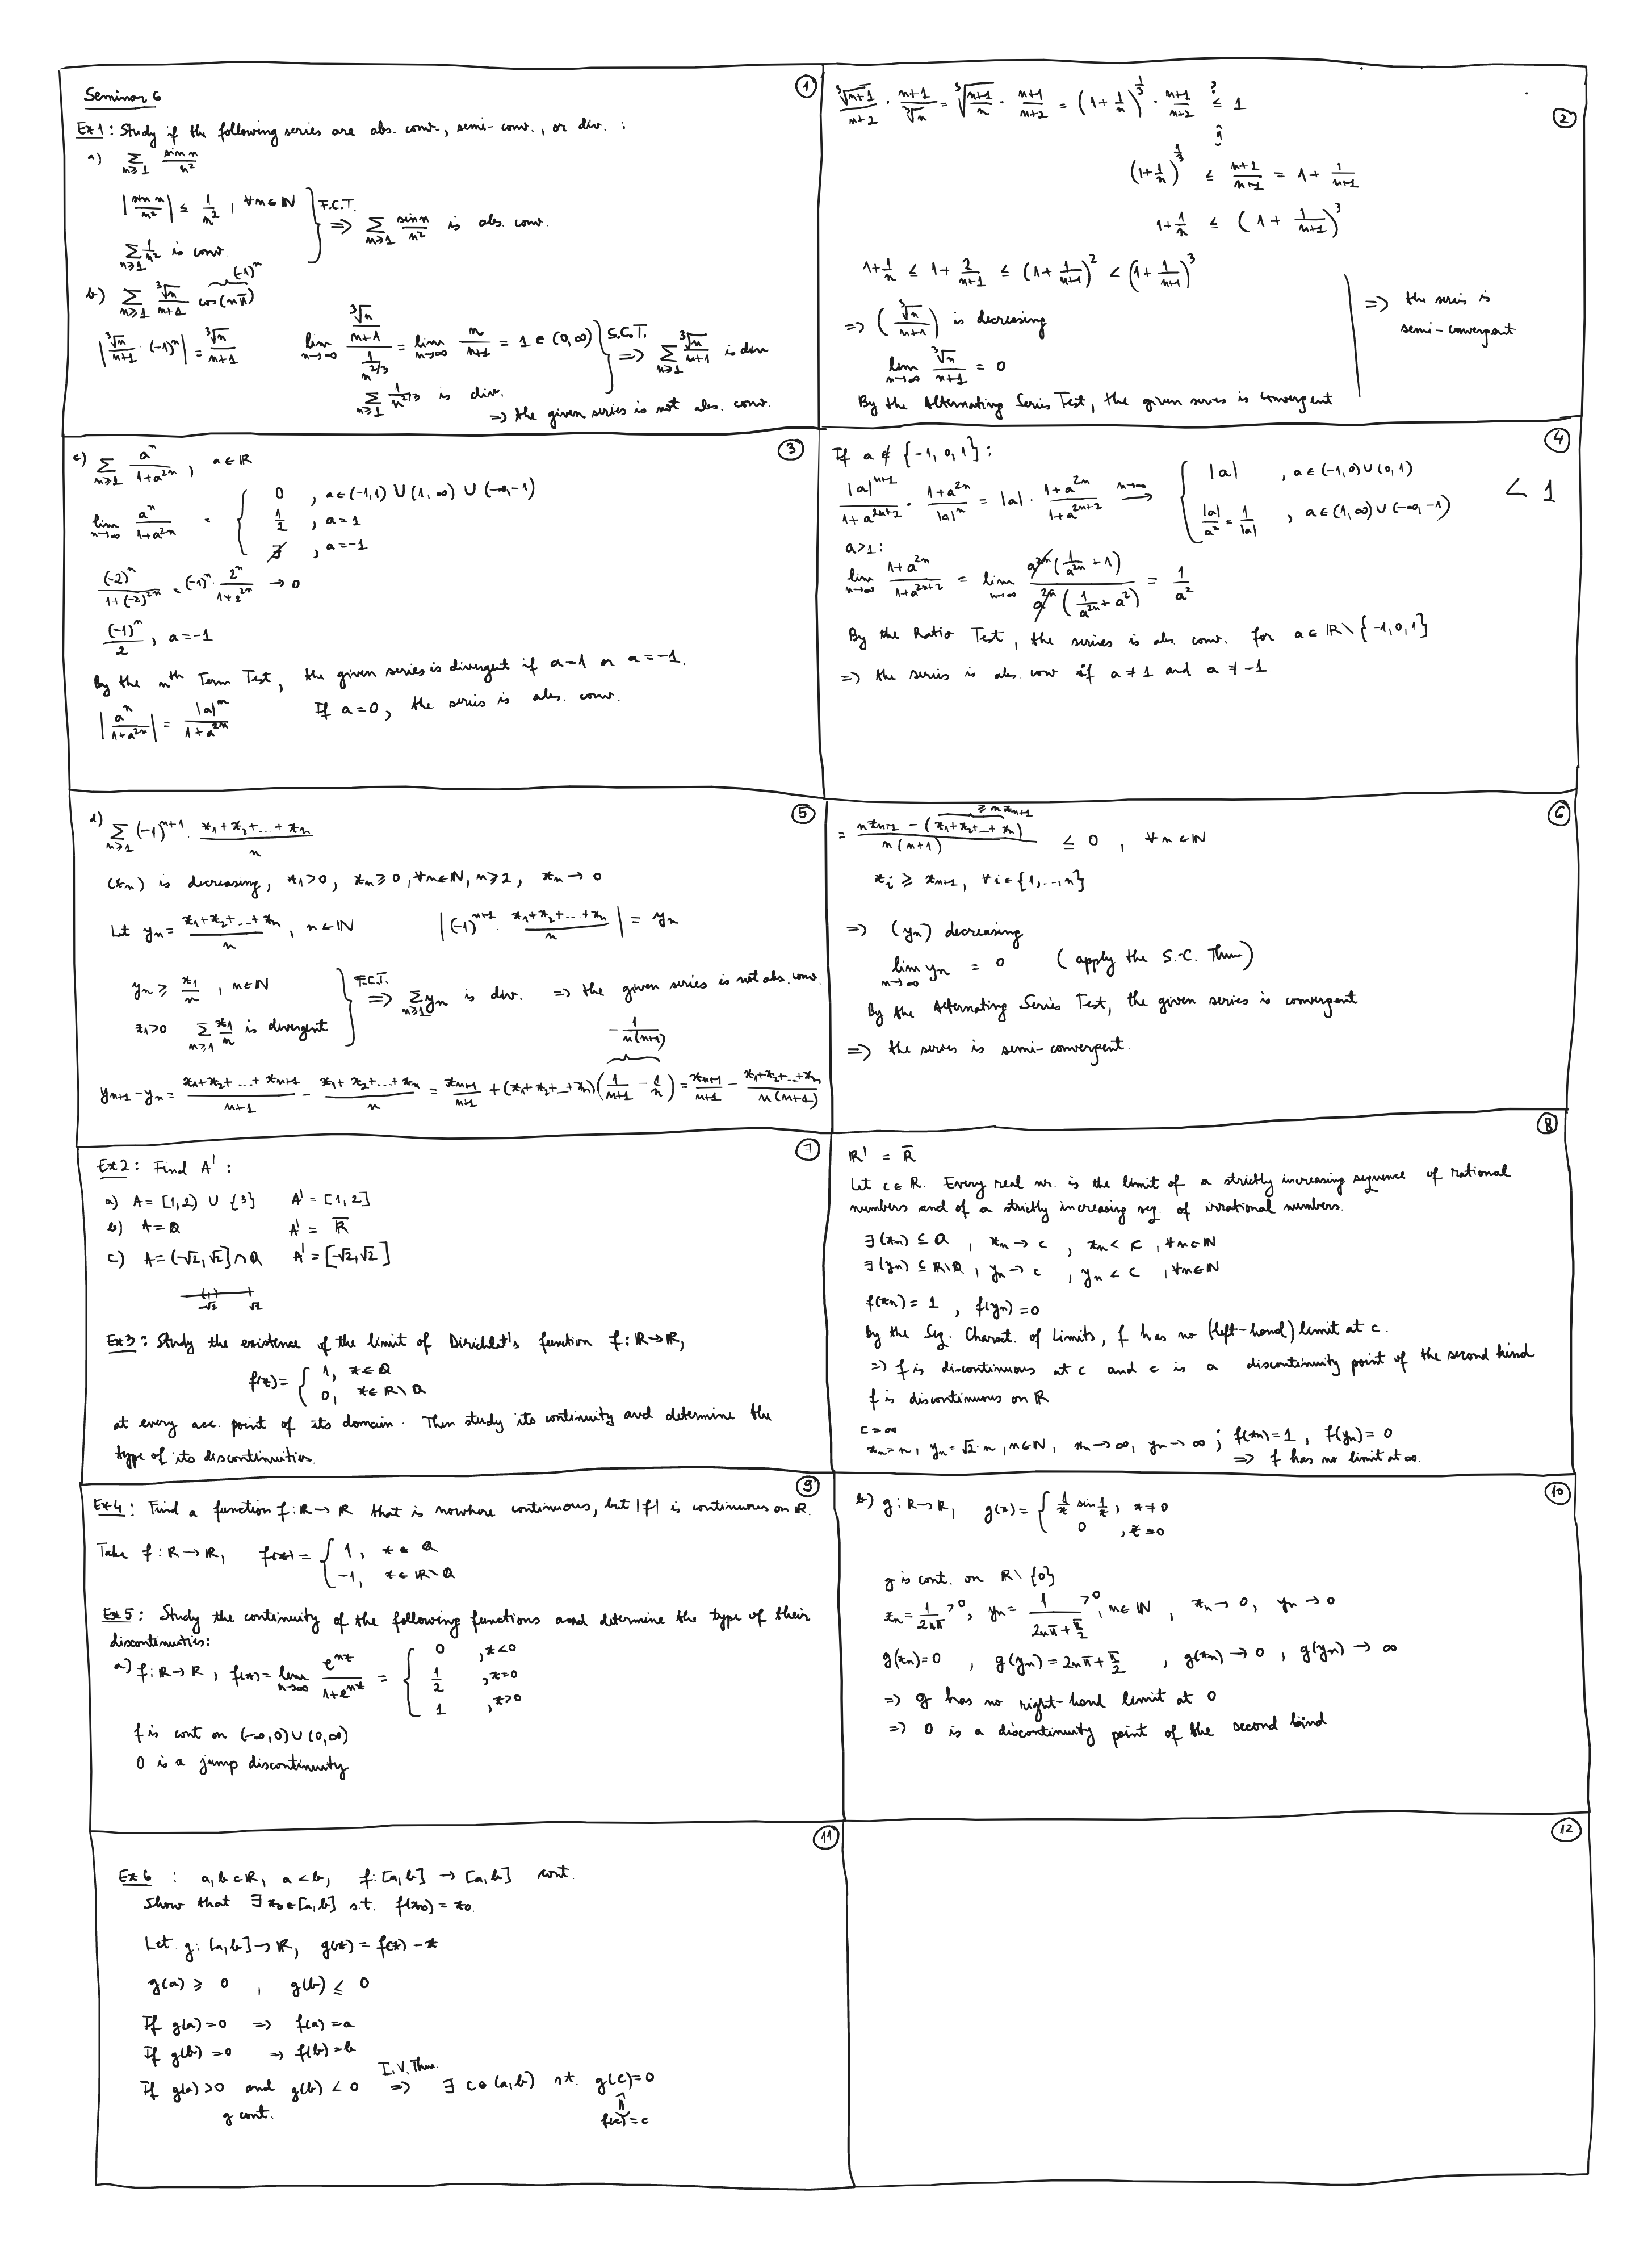 ①
Seminar 6
Ex 1: Study if the following series are abs. conv., semi-conv., or div. :
a) ∑_{n≥1} sin n / n²
|sin n / n²| ≤ 1/n² , ∀n∈ℕ
∑_{n≥1} 1/n² is conv. } F.C.T. ⇒ ∑_{n≥1} sin n / n² is abs. conv.
b) ∑_{n≥1} ∛n/(n+1) cos(nπ) (-1)ⁿ
|∛n/(n+1) · (-1)ⁿ| = ∛n/(n+1)
lim_{n→∞} (∛n/(n+1)) / (1/n^{2/3}) = lim_{n→∞} n/(n+1) = 1 ∈ (0,∞)
∑_{n≥1} 1/n^{2/3} is div. } S.C.T. ⇒ ∑_{n≥1} ∛n/(n+1) is div
⇒ the given series is not abs. conv.
②
∛(n+1)/(n+2) · (n+1)/∛n = ∛((n+1)/n) · (n+1)/(n+2) = (1+1/n)^{1/3} · (n+1)/(n+2) ≤ 1 ?
⇕
(1+1/n)^{1/3} ≤ (n+2)/(n+1) = 1 + 1/(n+1)
1+1/n ≤ (1 + 1/(n+1))³
1+1/n ≤ 1+2/(n+1) ≤ (1+1/(n+1))² < (1+1/(n+1))³
⇒ (∛n/(n+1)) is decreasing
lim_{n→∞} ∛n/(n+1) = 0
By the Alternating Series Test, the given series is convergent
⇒ the series is
semi-convergent
③
c) ∑_{n≥1} aⁿ/(1+a^{2n}) , a∈ℝ
lim_{n→∞} aⁿ/(1+a^{2n}) = { 0 , a∈(-1,1) ∪ (1,∞) ∪ (-∞,-1)
1/2 , a=1
∄ , a=-1
(-2)ⁿ/(1+(-2)^{2n}) = (-1)ⁿ · 2ⁿ/(1+2^{2n}) → 0
(-1)ⁿ/2 , a=-1
By the nth Term Test, the given series is divergent if a=1 or a=-1.
|aⁿ/(1+a^{2n})| = |a|ⁿ/(1+a^{2n}) If a=0, the series is abs. conv.
④
If a ∉ {-1, 0, 1}:
|a|^{n+1}/(1+a^{2n+2}) · (1+a^{2n})/|a|ⁿ = |a| · (1+a^{2n})/(1+a^{2n+2}) →^{n→∞} { |a| , a∈(-1,0)∪(0,1)
|a|/a² = 1/|a| , a∈(1,∞)∪(-∞,-1) < 1
a>1:
lim_{n→∞} (1+a^{2n})/(1+a^{2n+2}) = lim_{n→∞} a^{2n}(1/a^{2n} + 1) / a^{2n}(1/a^{2n} + a²) = 1/a²
By the Ratio Test, the series is abs. conv. for a∈ℝ\{-1,0,1}
⇒ the series is abs. conv if a≠1 and a≠-1.
⑤
d) ∑_{n≥1} (-1)^{n+1} · (x₁+x₂+...+xₙ)/n
(xₙ) is decreasing, x₁>0, xₙ≥0, ∀n∈ℕ, n≥2, xₙ→0
Let yₙ = (x₁+x₂+...+xₙ)/n , n∈ℕ |(-1)^{n+1} · (x₁+x₂+...+xₙ)/n| = yₙ
yₙ ≥ x₁/n , n∈ℕ
x₁>0 ∑_{n≥1} x₁/n is divergent } F.C.T. ⇒ ∑_{n≥1} yₙ is div. ⇒ the given series is not abs. conv.
-1/(n(n+1))
yₙ₊₁-yₙ = (x₁+x₂+...+xₙ₊₁)/(n+1) - (x₁+x₂+...+xₙ)/n = xₙ₊₁/(n+1) + (x₁+x₂+...+xₙ)(1/(n+1) - 1/n) = xₙ₊₁/(n+1) - (x₁+x₂+...+xₙ)/(n(n+1))
⑥
≥ n xₙ₊₁
= (n xₙ₊₁ - (x₁+x₂+...+xₙ))/(n(n+1)) ≤ 0 , ∀n∈ℕ
xᵢ ≥ xₙ₊₁, ∀i∈{1,...,n}
⇒ (yₙ) decreasing
lim_{n→∞} yₙ = 0 (apply the S.-C. Thm)
By the Alternating Series Test, the given series is convergent
⇒ the series is semi-convergent.
⑦
Ex 2: Find A' :
a) A = [1,2) ∪ {3} A' = [1,2]
b) A = ℚ A' = ℝ̅
c) A = (-√2,√2]∩ℚ A' = [-√2,√2]
-√2 √2
Ex 3: Study the existence of the limit of Dirichlet's function f: ℝ→ℝ,
f(x) = { 1, x∈ℚ
0, x∈ℝ\ℚ
at every acc. point of its domain. Then study its continuity and determine the
type of its discontinuities.
⑧
ℝ' = ℝ̅
Let c∈ℝ. Every real nr. is the limit of a strictly increasing sequence of rational
numbers and of a strictly increasing seq. of irrational numbers.
∃(xₙ) ⊆ ℚ , xₙ→c , xₙ<c , ∀n∈ℕ
∃(yₙ) ⊆ ℝ\ℚ , yₙ→c , yₙ<c , ∀n∈ℕ
f(xₙ) = 1 , f(yₙ) = 0
By the Seq. Charact. of Limits, f has no (left-hand) limit at c.
⇒ f is discontinuous at c and c is a discontinuity point of the second kind
f is discontinuous on ℝ
c=∞
xₙ=n, yₙ=√2·n, n∈ℕ, xₙ→∞, yₙ→∞ ; f(xₙ)=1 , f(yₙ)=0
⇒ f has no limit at ∞.
⑨
Ex 4: Find a function f:ℝ→ℝ that is nowhere continuous, but |f| is continuous on ℝ.
Take f:ℝ→ℝ, f(x) = { 1, x∈ℚ
-1, x∈ℝ\ℚ
Ex 5: Study the continuity of the following functions and determine the type of their
discontinuities:
a) f:ℝ→ℝ , f(x) = lim_{n→∞} e^{nx}/(1+e^{nx}) = { 0 , x<0
1/2 , x=0
1 , x>0
f is cont on (-∞,0)∪(0,∞)
0 is a jump discontinuity
⑩
b) g:ℝ→ℝ, g(x) = { 1/x sin 1/x, x≠0
0 , x=0
g is cont. on ℝ\{0}
xₙ = 1/(2nπ) >0, yₙ = 1/(2nπ+π/2) >0, n∈ℕ , xₙ→0, yₙ→0
g(xₙ)=0 , g(yₙ) = 2nπ+π/2 , g(xₙ)→0 , g(yₙ)→∞
⇒ g has no right-hand limit at 0
⇒ 0 is a discontinuity point of the second kind
⑪
Ex 6 : a,b∈ℝ, a<b, f:[a,b]→[a,b] cont.
Show that ∃x₀∈[a,b] s.t. f(x₀)=x₀.
Let g:[a,b]→ℝ, g(x)=f(x)-x
g(a) ≥ 0 , g(b) ≤ 0
If g(a)=0 ⇒ f(a)=a
If g(b)=0 ⇒ f(b)=b
If g(a)>0 and g(b)<0 ⇒ (I.V.Thm.) ∃c∈(a,b) s.t. g(c)=0
g cont. ⇕
f(c)=c
⑫